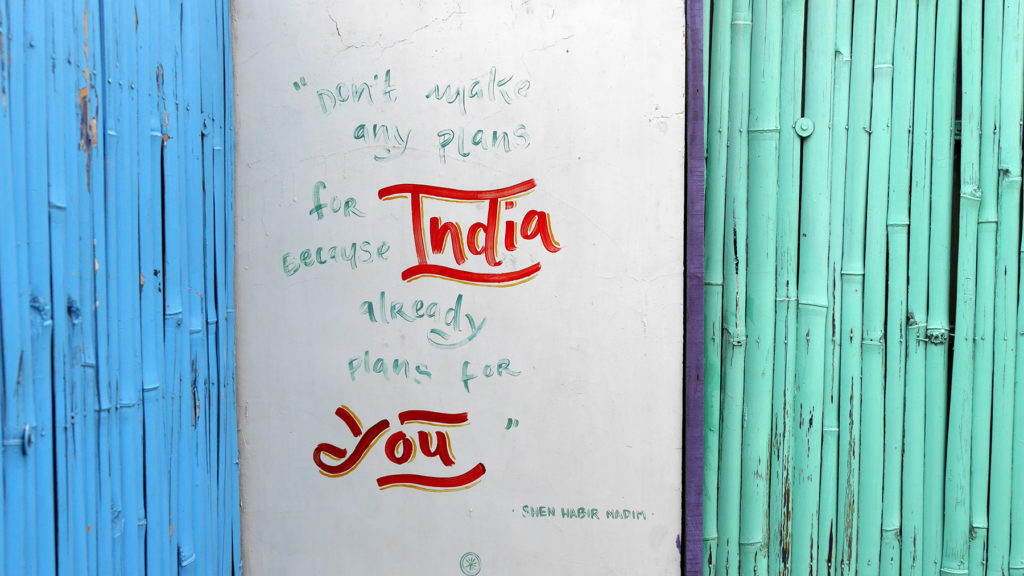 "Don't make
any plans
for India
Because
already
plans for
You"
· SHEN HABIR NADIM ·